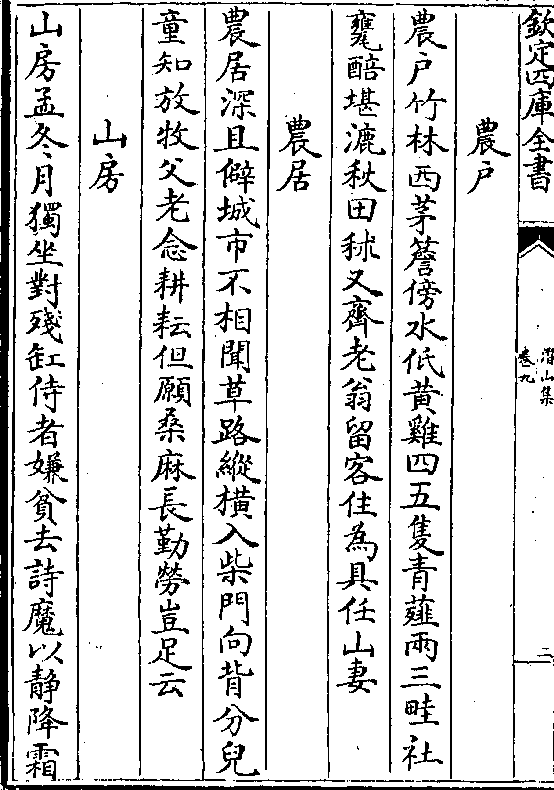 欽定四庫全書
潛山集
卷九
二
農戸
農戸竹林西茅簷傍水低黃雞四五隻青薤兩三畦社
甕醅堪漉秋田秫又齊老翁留客住為具任山妻
農居
農居深且僻城市不相聞草路縱橫入柴門向背分兒
童知放牧父老念耕耘但願桑麻長勤勞豈足云
山房
山房孟冬月獨坐對殘缸侍者嫌貧去詩魔以靜降霜